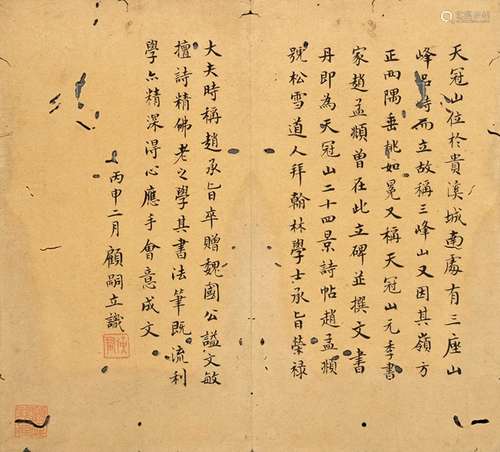 天冠山位於貴溪城南處有三座山
峰品峙而立故稱三峰山又因其嶺方
正四隅垂桃如冕又稱天冠山元季書
家趙孟頫曾在此立碑並撰文書
丹即為天冠山二十四景詩帖趙孟頫
號松雪道人拜翰林學士承旨榮祿
大夫時稱趙承旨卒贈魏國公謚文敏
擅詩精佛老之學其書法筆既流利
學亦精深得心應手會意成文
丙申二月顧嗣立識